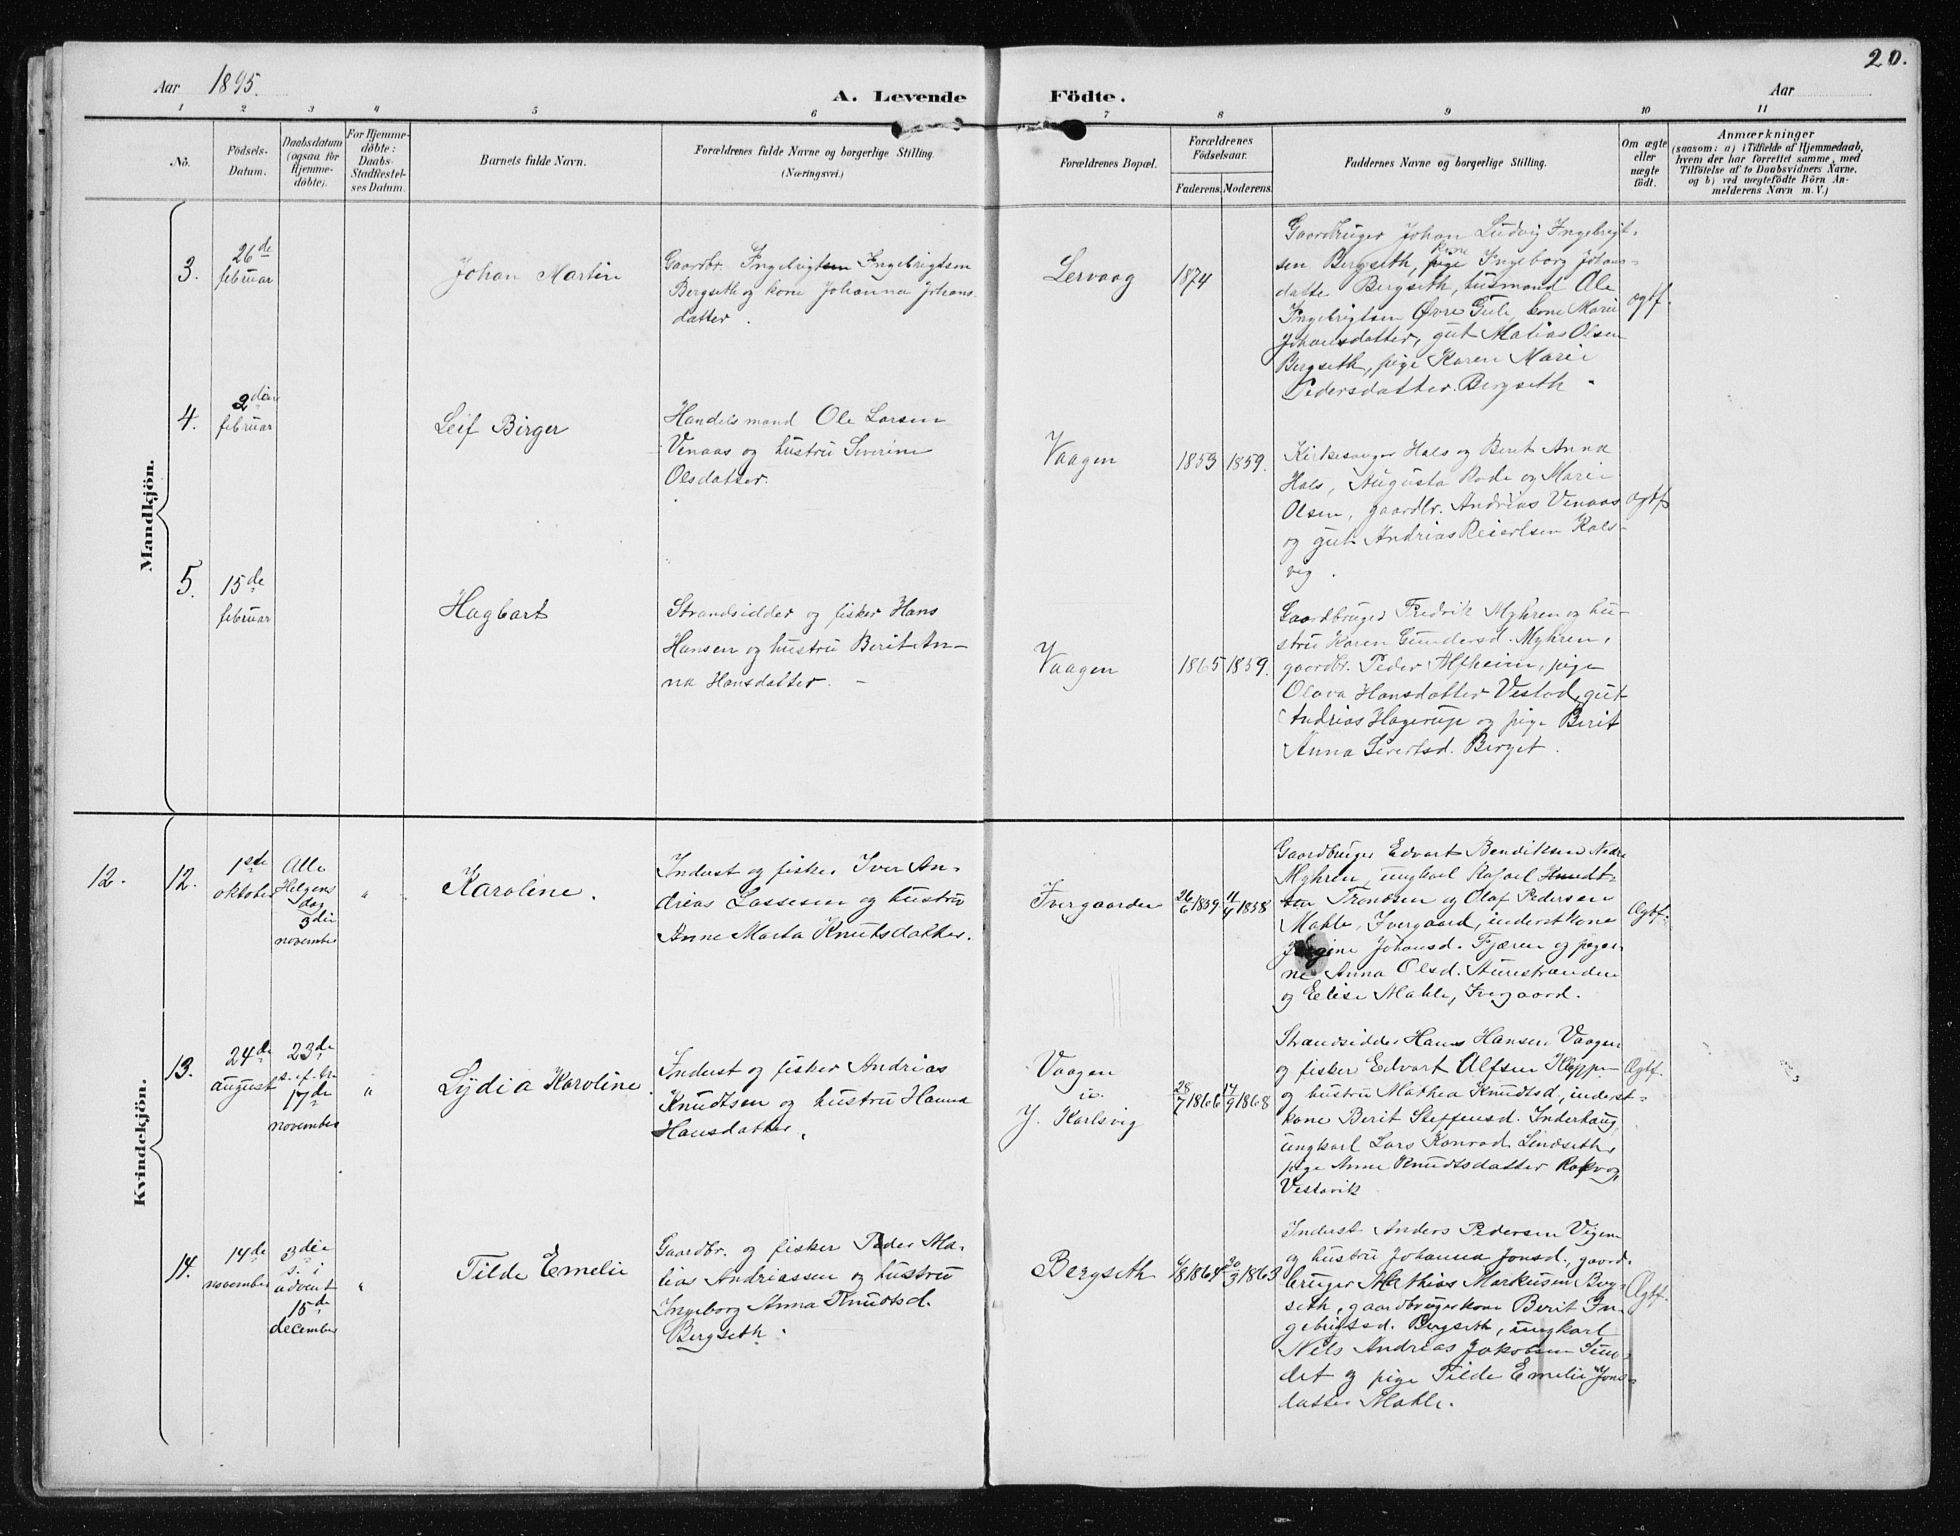 20.
Aar 1895.
A. Levende
Födte.
Aar
1 2 3 4 5 6 7 8 9 10 11
No.
Födsels-
Datum.
Daabsdatum
(ogsaa for
Hjemme-
döbte).
For Hjemme-
döbte:
Daabs-
Stadfæstel-
ses Datum.
Barnets fulde Navn.
Forældrenes fulde Navne og borgerlige Stilling.
(Næringsvei.)
Forældrenes Bopæl.
Forældrenes
Födselsaar.
Faderens. Moderens.
Faddernes Navne og borgerlige Stilling.
Om ægte
eller
uægte
födt.
Anmærkninger
(saasom: a) i Tilfælde af Hjemmedaab,
hvem der har forrettet samme, med
Tilföielse af to Daabsvidners Navne.
og b) ved uægtefödte Börn An-
melderens Navn m. V.)
Mandkjön.
3.
26de
februar
Johan Martin
Gaardbr. Ingebrigtsen Ingebrigtsen
Bergseth og kone Johanna Johans-
datter.
Lervaag
1874
Gaardbruger Johan Ludvig Ingebrigt-
sen Bergseth, pige Ingeborg Johans-
datter Bergseth, husmand Ole
Ingebrigtsen Øvre Gule, kone Marie
Johansdatter, gut Matias Olsen
Bergseth, pige Karen Marie
Pedersdatter Bergseth.
ægtf.
4.
2den
februar
Leif Birger
Handelsmand Ole Larsen
Venaas og hustru Severine
Olsdatter.
Vaagen
1853 1859.
Kirkesanger Hals og Berit Anna
Hals, Augusta Rode og Marie
Olsen, gaardbr. Andrias Venaas
og gut Andrias Reiertsen Kals-
vig.
ægtf.
5.
15de
februar
Hagbart
Strandsidder og fisker Hans
Hansen og hustru Berit An-
na Hansdatter.
Vaagen
1865 1859.
Gaardbruger Fredrik Myhren og hu-
stru Karen Gundersd. Myhren,
gaardbr. Peder Alfheim, pige
Olava Hansdatter Vestad, gut
Andrias Hagerup og pige Berit
Anna Sivertsd. Berget.
Kvindekjön.
12.
12.
1ste
oktober
Alle
Helgens
dag
3die
november
"
Karoline.
Inderst og fisker Iver An-
drias Lassesen og hustru
Anne Marta Knutsdatter.
Ivergaarden
26/6 1859 11/4 1858
Gaardbruger Edvart Bendiksen Nedre
Myhren, ungkarl Rafael Knudt-
son Trondsen og Olaf Pedersen
Mahle, Ivergaard, inderstkone
Jørgine Johansd. Fjæren og piger-
ne Anna Olsd. Aurestranden
og Eelise Mahle, Ivergaard.
Ægtf.
13.
24de
august
23de
s. e. tr.
17de
november
"
Lydia Karoline
Inderst og fisker Andrias
Knudtsen og hustru Hanna
Hansdatter.
Vaagen
J. Karlsvig
28/7 1866 14/9 1868
Strandsidder Hans Hansen Vaagen
og fisker Edvart Alfsen Kleppe
og hustru Mathea Knudtsd., inderst-
kone Berit Steffensd. Inderhaug,
ungkarl Lars Konrad Lindseth,
pige Anne Knudtsdatter
Vestavik
Ægtf.
14.
14de
november
3die
s. i
advent
15de
december
"
Tilde Emelie
Gaardbr. og fisker Peder Ma-
tias Andriassen og hustru
Ingeborg Anna Knudtsd.
Bergseth.
Bergseth
1864 20/3 1863
Inderst Anders Pedersen Vigen
og hustru Johanna Jonsd., gaard-
bruger Mathias Markusen Berg-
seth, gaardbrugerkone Berit In-
gebrigtsd. Bergseth, ungkarl
Nils Andrias Jakobsen Sun-
det og pige Tilde Emelie Jons-
datter Mahle.
Ægtf.